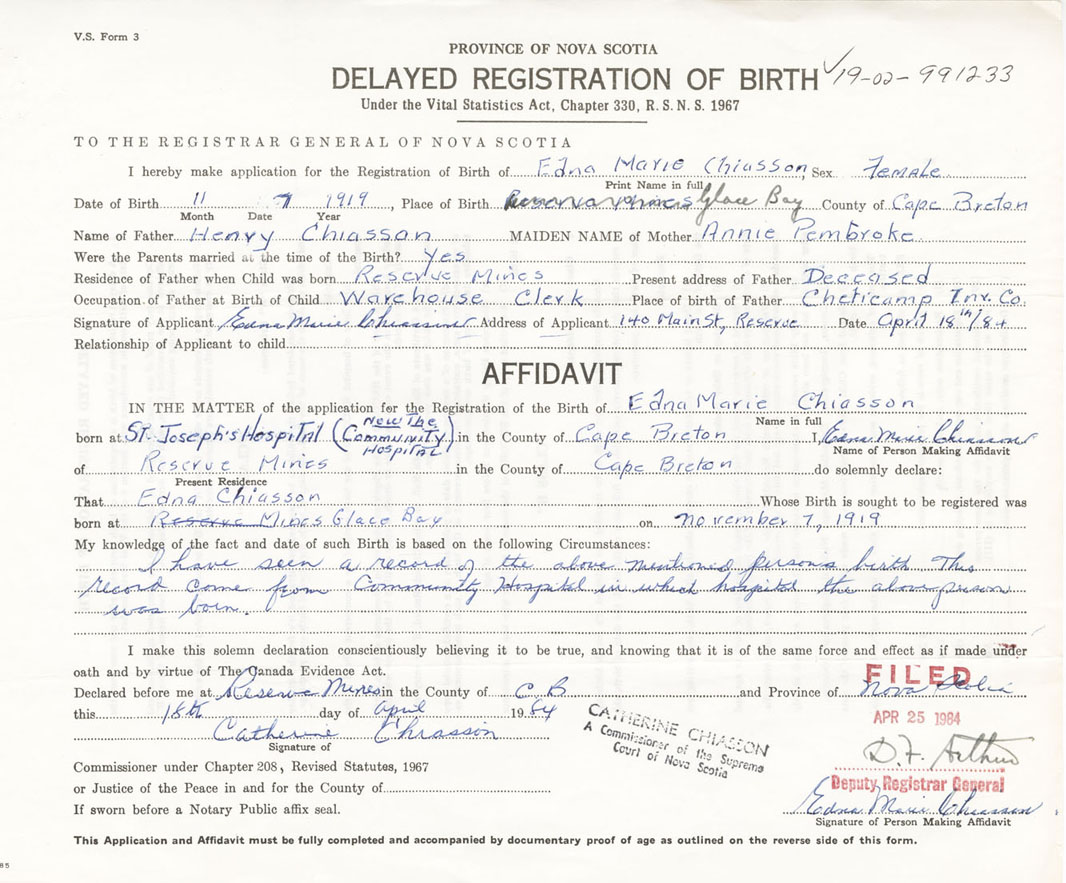 V.S. Form 3
PROVINCE OF NOVA SCOTIA
DELAYED REGISTRATION OF BIRTH ✓19-02-991233
Under the Vital Statistics Act, Chapter 330, R.S.N.S. 1967
TO THE REGISTRAR GENERAL OF NOVA SCOTIA
I hereby make application for the Registration of Birth of Edna Marie Chiasson, Sex Female
Print Name in full
Date of Birth 11 7 1919, Place of Birth Reserve Mines Glace Bay County of Cape Breton
Month Date Year
Name of Father Henry Chiasson MAIDEN NAME of Mother Annie Pembroke
Were the Parents married at the time of the Birth? Yes
Residence of Father when Child was born Reserve Mines Present address of Father Deceased
Occupation of Father at Birth of Child Warehouse Clerk Place of birth of Father Cheticamp Inv. Co.
Signature of Applicant Edna Marie Chiasson Address of Applicant 140 Main St, Reserve Date April 18th/84
Relationship of Applicant to child
AFFIDAVIT
IN THE MATTER of the application for the Registration of the Birth of Edna Marie Chiasson
Name in full
born at St. Joseph's Hospital (Now The Community Hospital) in the County of Cape Breton I, Edna Marie Chiasson
Name of Person Making Affidavit
of Reserve Mines in the County of Cape Breton do solemnly declare:
Present Residence
That Edna Chiasson Whose Birth is sought to be registered was
born at Reserve Mines Glace Bay on November 7, 1919
My knowledge of the fact and date of such Birth is based on the following Circumstances:
I have seen a record of the above mentioned persons birth This
record come from Community Hospital in which hospital the above person
was born.
I make this solemn declaration conscientiously believing it to be true, and knowing that it is of the same force and effect as if made under
oath and by virtue of The Canada Evidence Act.
FILED
Declared before me at Reserve Mines in the County of C.B and Province of Nova Scotia
this 18th day of April 1984
APR 25 1984
CATHERINE CHIASSON
A Commissioner of the Supreme
Court of Nova Scotia
Catherine Chiasson
Signature of
D.F. Arthur
Commissioner under Chapter 208, Revised Statutes, 1967
Deputy Registrar General
or Justice of the Peace in and for the County of
Edna Marie Chiasson
If sworn before a Notary Public affix seal.
Signature of Person Making Affidavit
This Application and Affidavit must be fully completed and accompanied by documentary proof of age as outlined on the reverse side of this form.
85